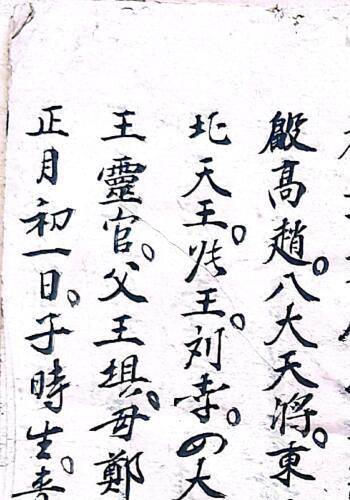 殷高趙。八大天將。東
北天王。王刘李。の大
王靈官。父王琪。母鄭
正月初一日。子時生。